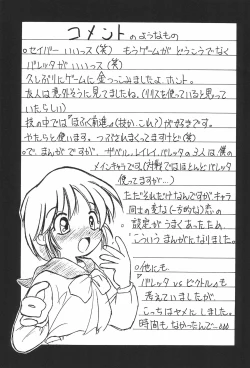 コメントのようなもの
。セイバー いいっス(笑) もうゲームがどうこうでなく
バレッタがいいっス(笑)
久しぶりにゲームに金つっこみましたよ ホント。
友人は意外そうに見てましたね。(リリスを使ってると思って
いたらしい)
技の中では「ほふく前進」(技か、これ?)が好きです。
やたらと使います。つぶされまくってますけど(笑)
。で、まんがですが、ザベル、レイレイ、バレッタの3人は僕の
メインキャラです。(対戦ではほとんどバレッタ
使ってますが…)
ただそれだけなんですがキャラ
同士の変な(一方的な)恋の
設定がうまくあったため、
こういうまんがになりました。
。他にも
「バレッタ vs ビクトル」も
考えていましたが
こっちはヤメにしました。
時間もなかったんで…